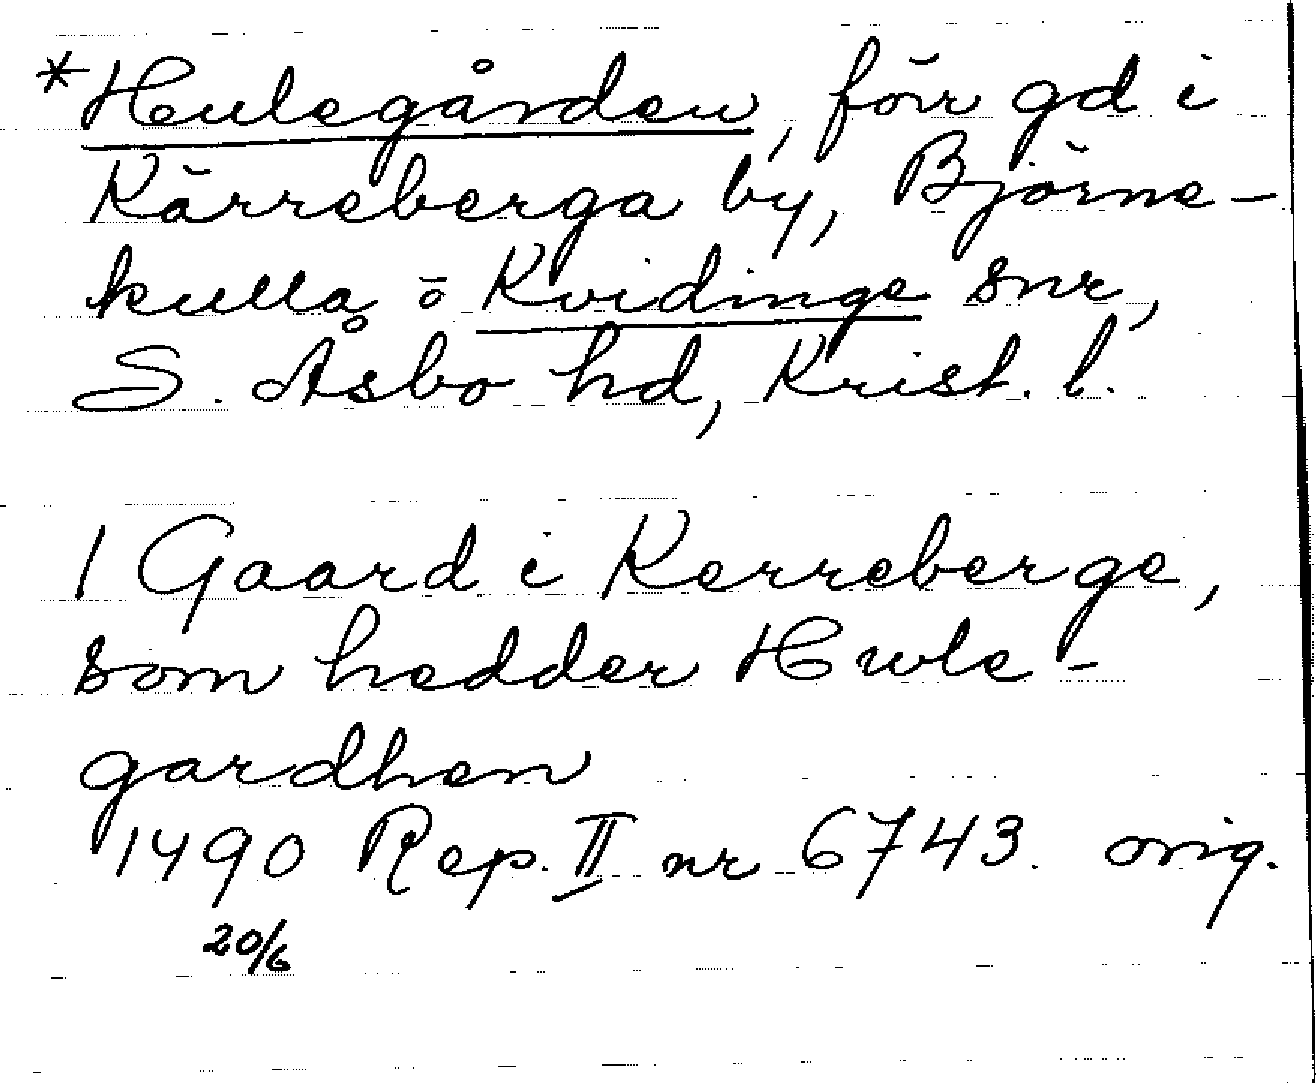 *Hulegården, förr gd i
Kärreberga by, Björne-
kulla o Kvidinge snr,
S. Åsbo hd, Krist. l.
1 Gaard i Kerreberge,
som hedder Hwle-
gardhen
1490 Rep. II nr 6743. orig.
20/6